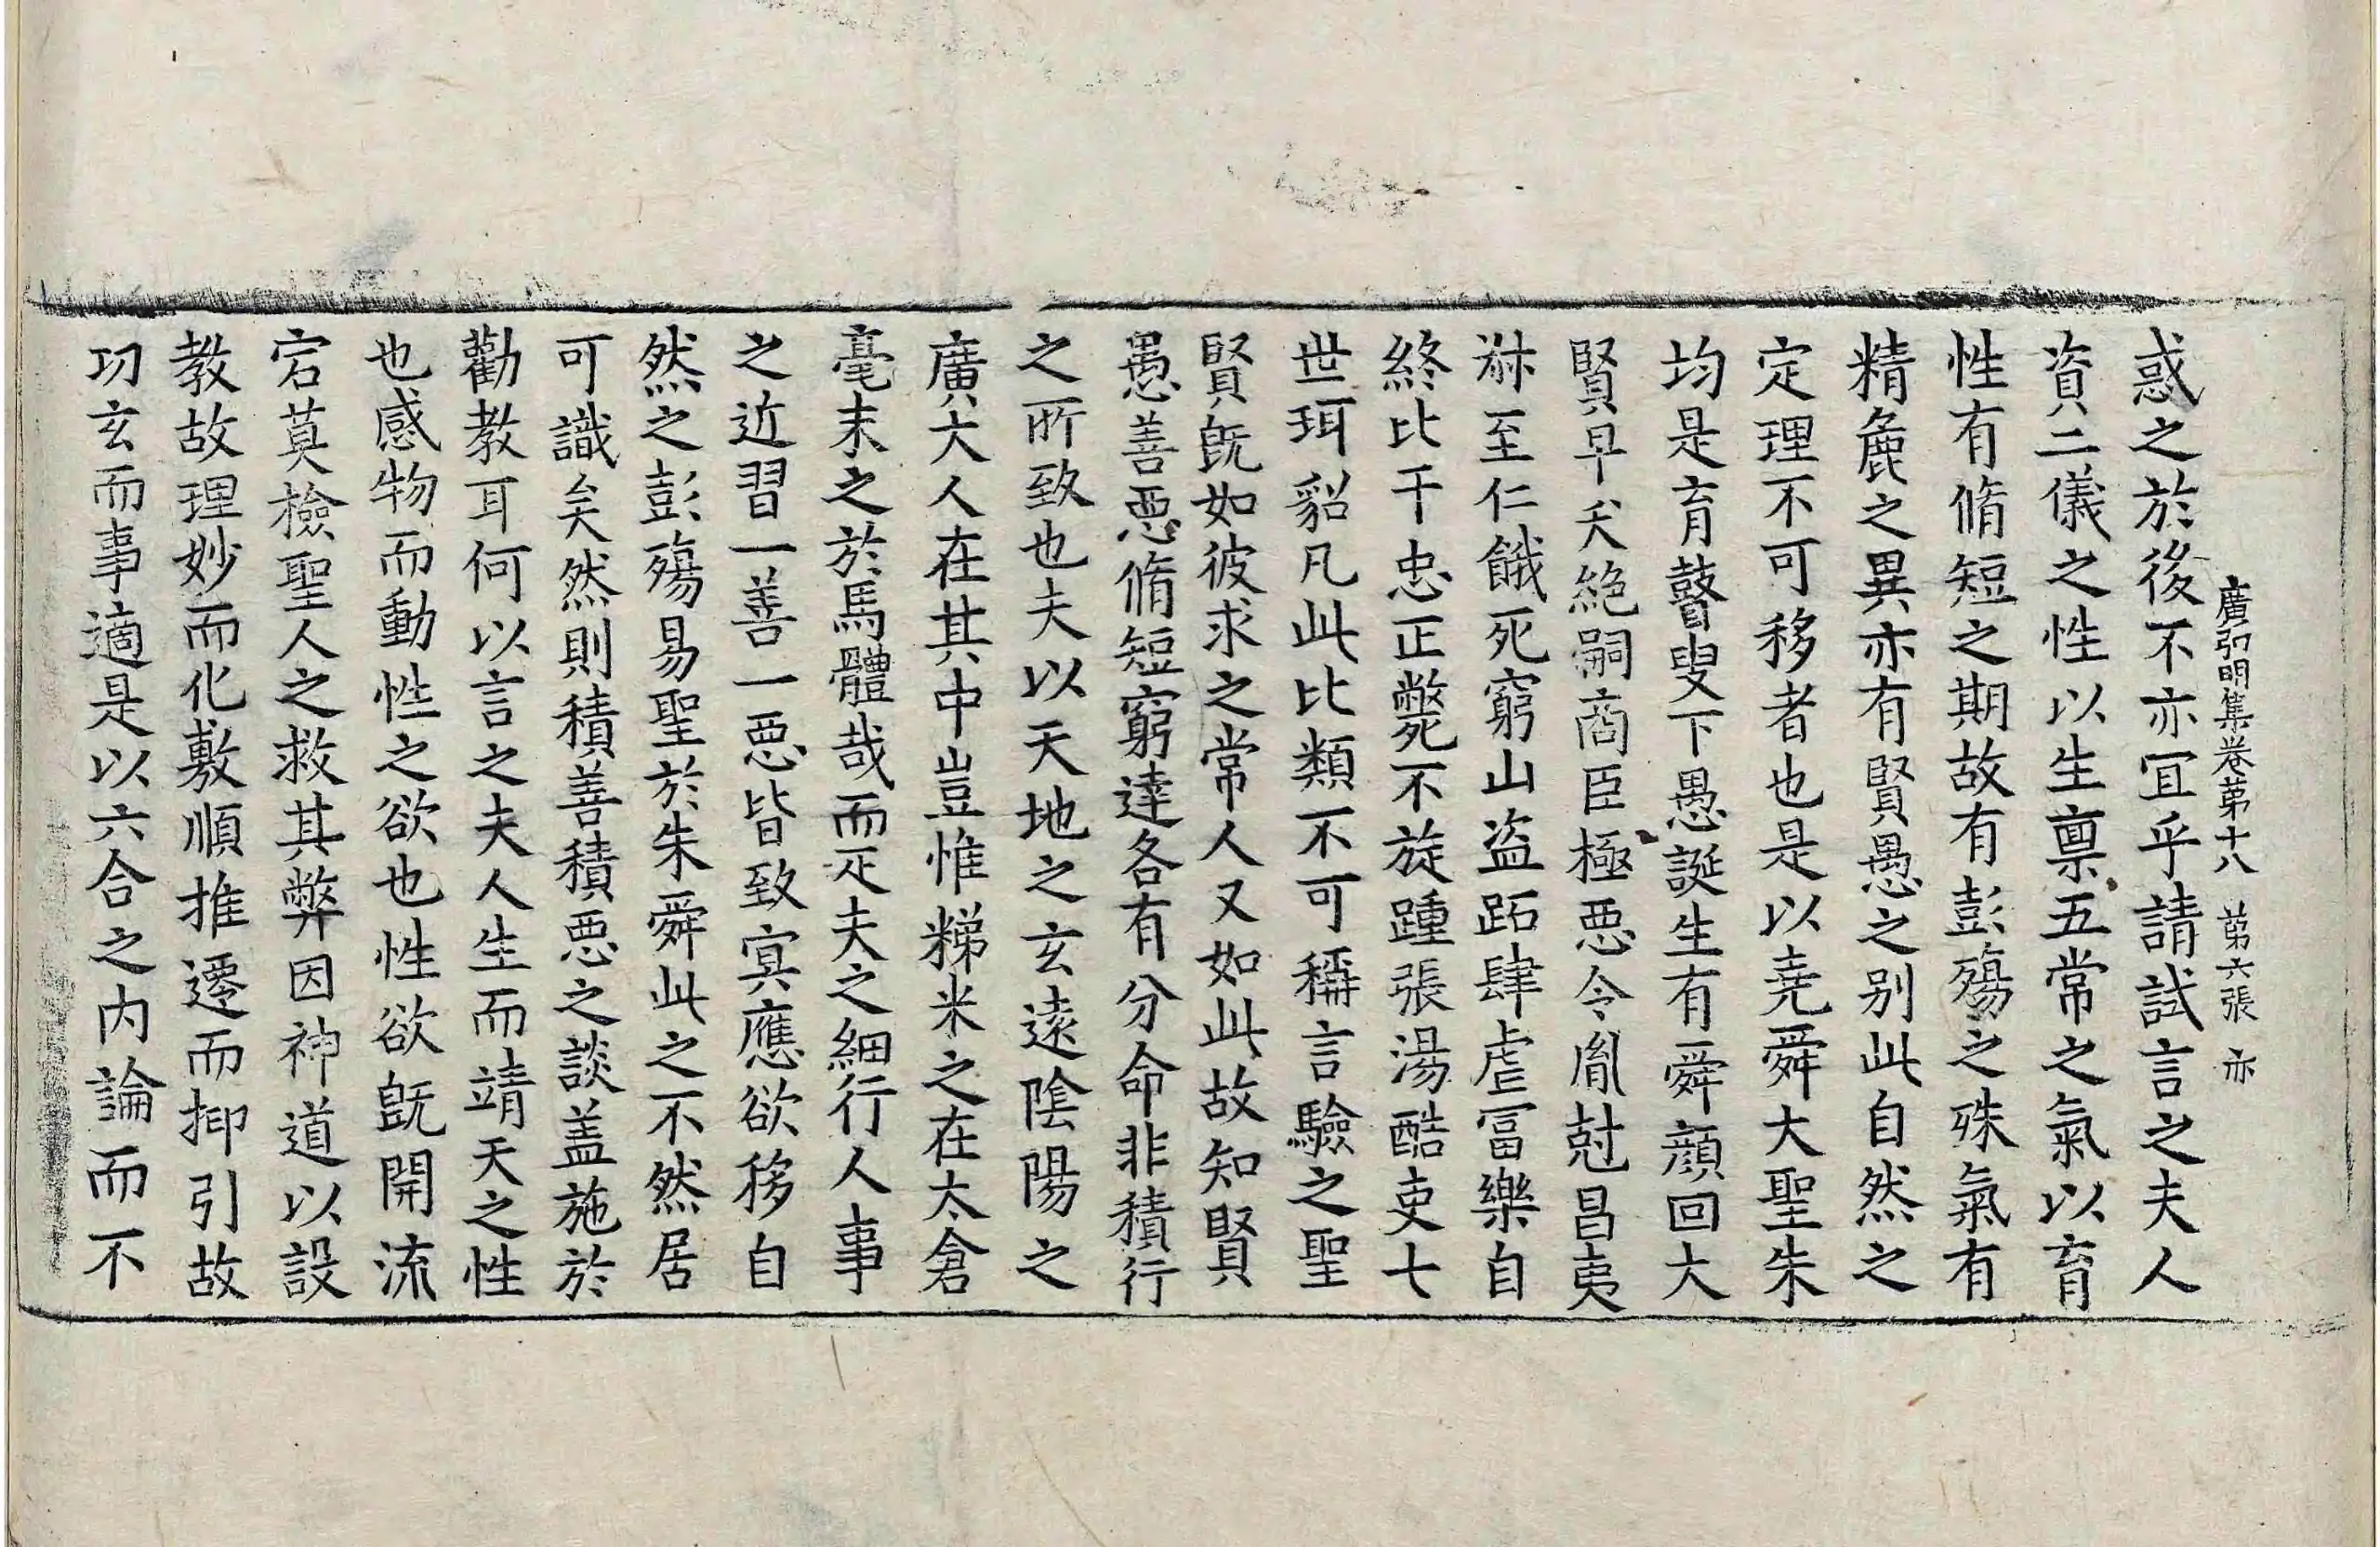 廣弘明集卷第十八　第六張　亦
惑之於後不亦冝乎請試言之夫人
資二儀之性以生禀五常之氣以育
性有脩短之期故有彭殤之殊氣有
精麁之異亦有賢愚之别此自然之
定理不可移者也是以尭舜大聖朱
均是育瞽叟下愚誕生有舜顔回大
賢早夭絶嗣商臣極惡令胤尅昌夷
叔至仁餓死窮山盗跖肆虐冨樂自
終比干忠正斃不旋踵張湯酷吏七
世珥貂凡此比類不可稱言驗之聖
賢既如彼求之常人又如此故知賢
愚善惡脩短窮達各有分命非積行
之所致也夫以天地之玄遠陰陽之
廣大人在其中豈惟稊米之在太倉
毫末之於馬體哉而疋夫之細行人事
之近習一善一惡皆致冥應欲移自
然之彭殤易聖於朱舜此之不然居
可識矣然則積善積惡之談盖施於
勸教耳何以言之夫人生而靖天之性
也感物而動性之欲也性欲旣開流
宕莫檢聖人之救其弊因神道以設
教故理妙而化敷順推遷而抑引故
功玄而事適是以六合之内論而不